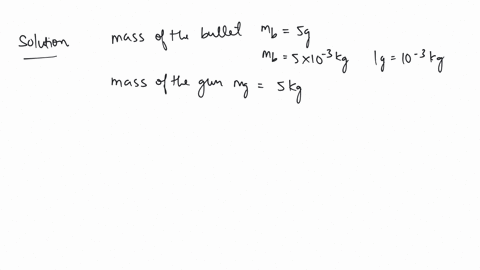 Solution mass of the bullet m_b = 5g
m_b = 5×10⁻³ kg 1g = 10⁻³ kg
mass of the gun mg = 5 kg